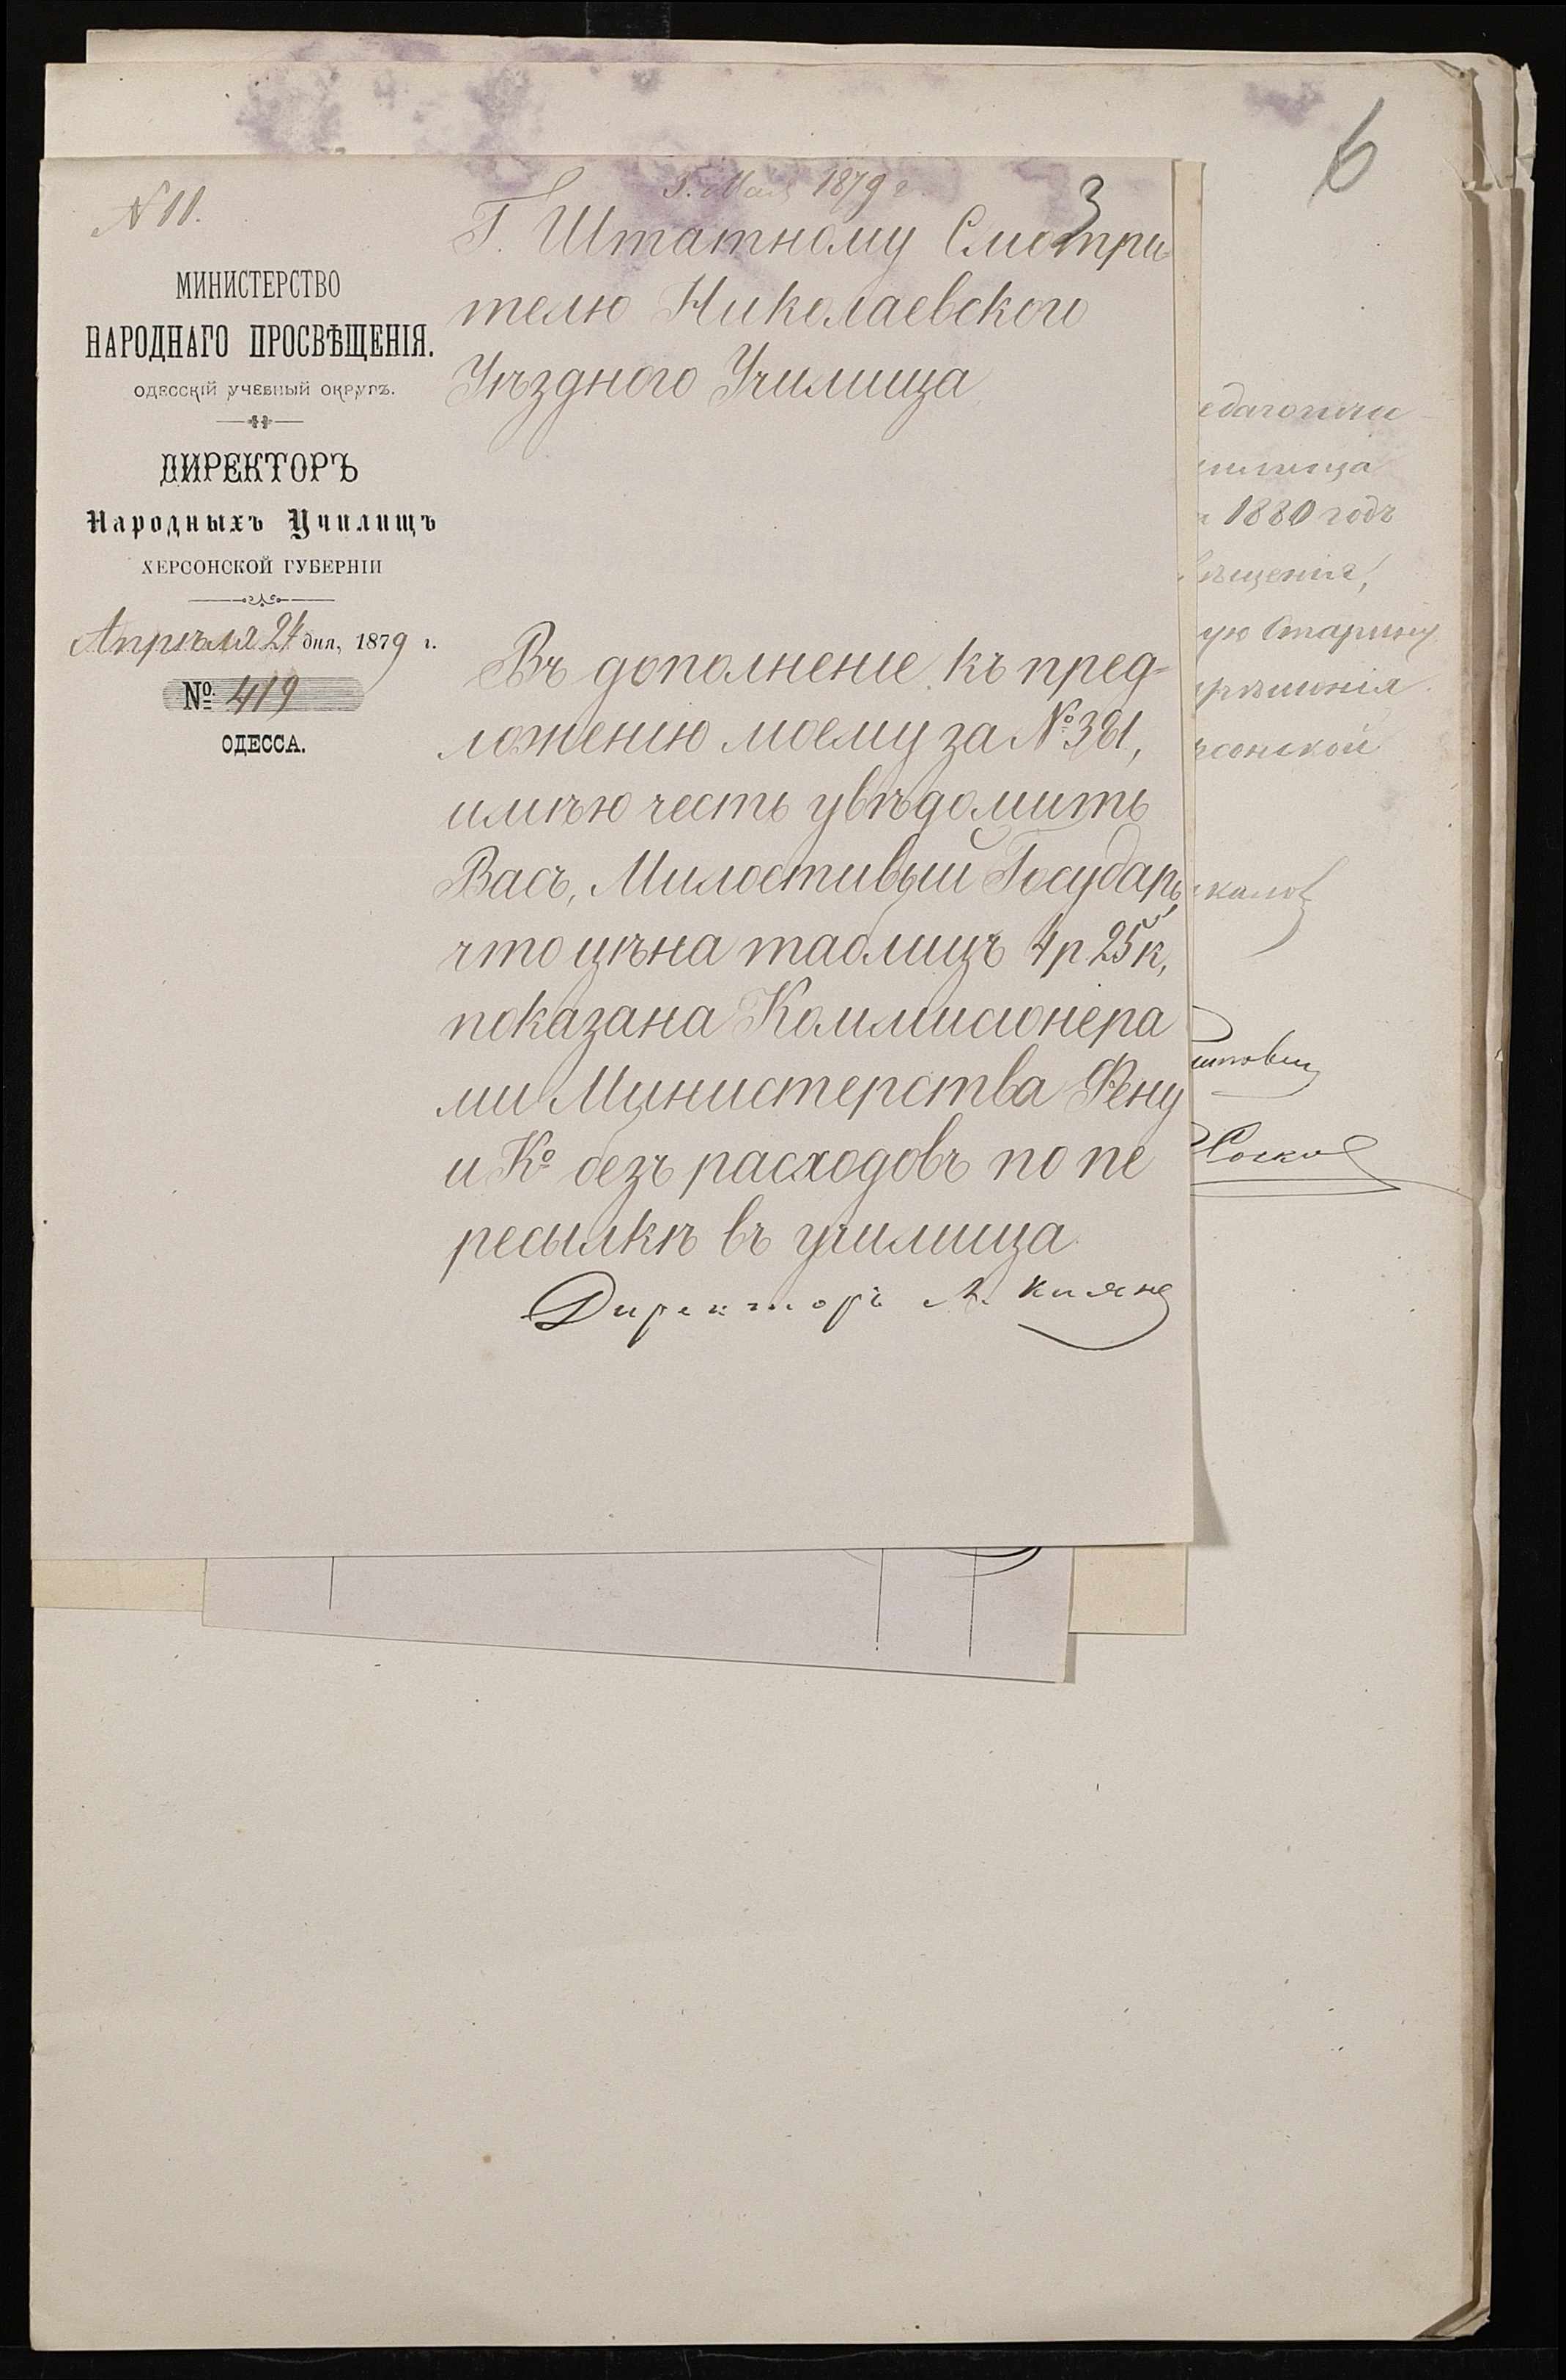 6
5. Мая 1879 г.
3
N 11.
МИНИСТЕРСТВО
НАРОДНАГО ПРОСВѢЩЕНІЯ.
ОДЕССКІЙ УЧЕБНЫЙ ОКРУГЪ.
ДИРЕКТОРЪ
Народныхъ Училищъ
ХЕРСОНСКОЙ ГУБЕРНІИ
Апрѣля 24 дня, 1879 г.
№ 419
ОДЕССА.
Г. Штатному Смотри-
телю Николаевского
Уѣздного Училища
Въ дополненіе къ пред-
ложенію моему за № 381,
имѣю честь увѣдомить
Васъ, Милостивый Государь,
что цѣна таблицъ 4 р. 25 к,
показана Коммисіонера
ми Министерства Фену
и Ко безъ расходовъ по пе
ресылкѣ въ училища
Директоръ
едагогиче
илища
1880 годъ
ѣщенія,
ую Старину
рсонской